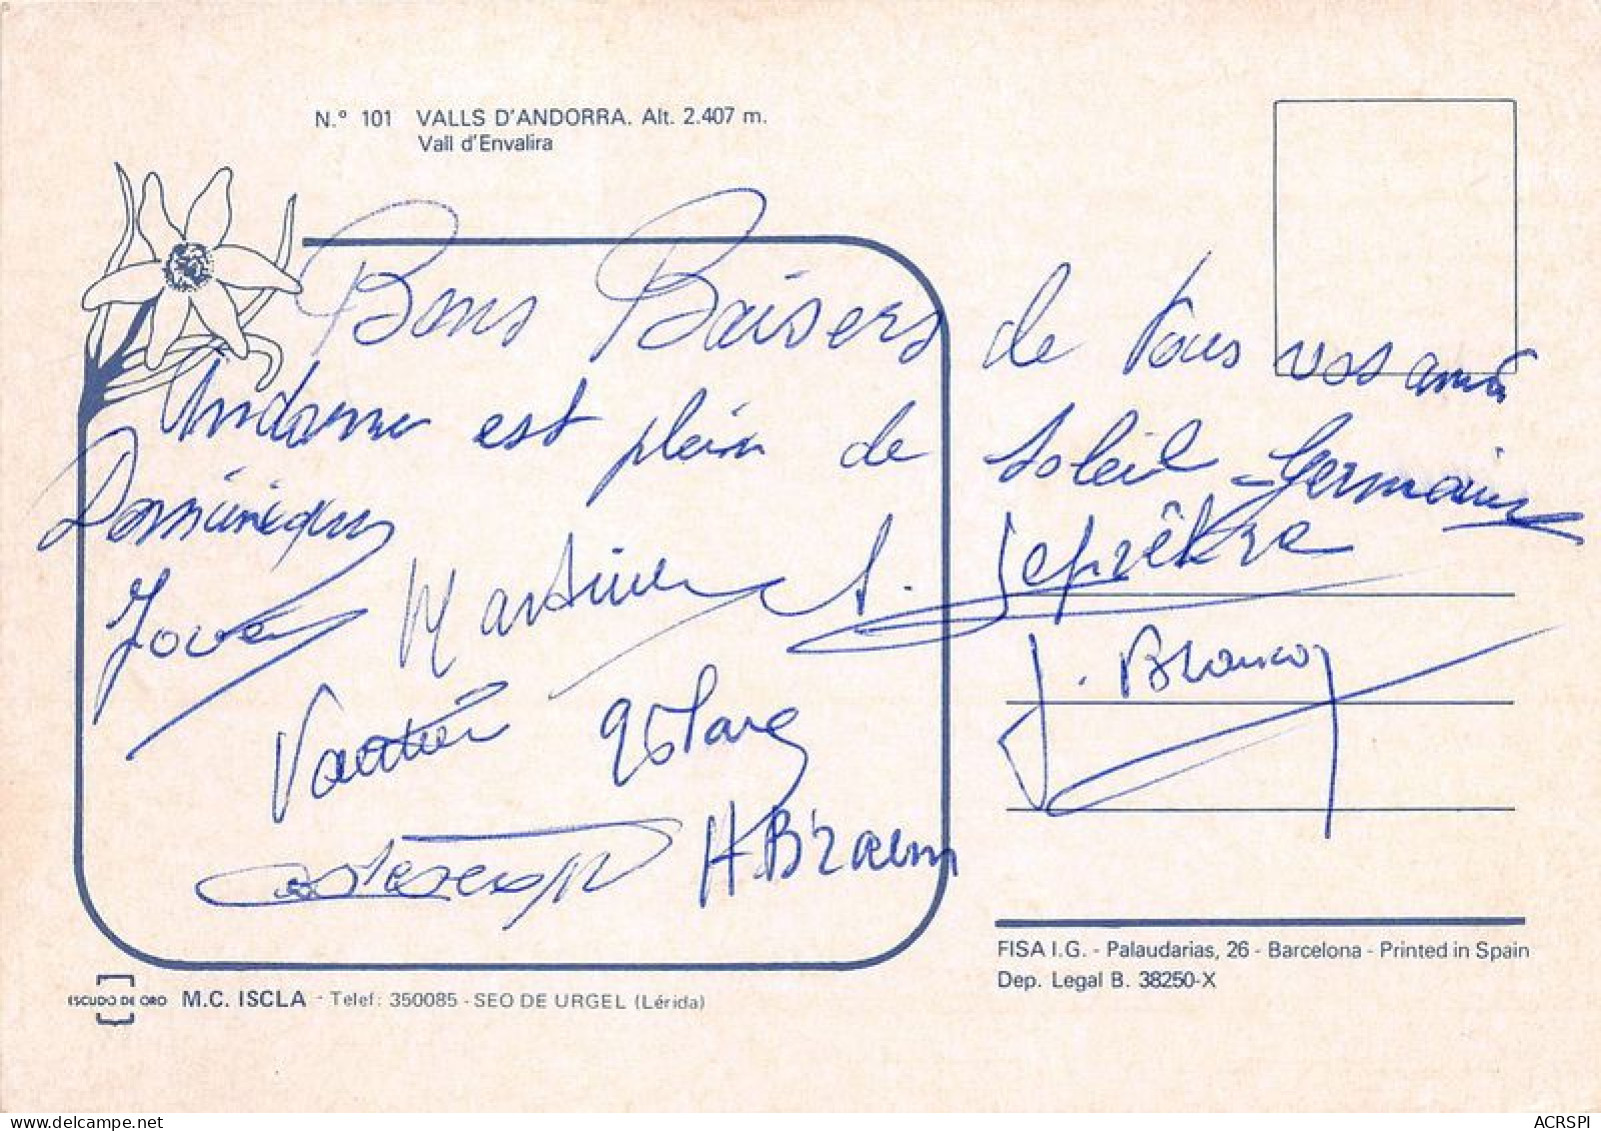 N.º 101 VALLS D'ANDORRA. Alt. 2.407 m.
Vall d'Envalira
Bons Baisers de tous vos amis
Andorre est plein de soleil - Germaine
Dominique
Martine A. Leprêtre
J. Blancoz
Vautier
H Braem
FISA I.G. - Palaudarias, 26 - Barcelona - Printed in Spain
Dep. Legal B. 38250-X
ESCUDO DE ORO M.C. ISCLA - Telef: 350085 - SEO DE URGEL (Lérida)
ACRSPI